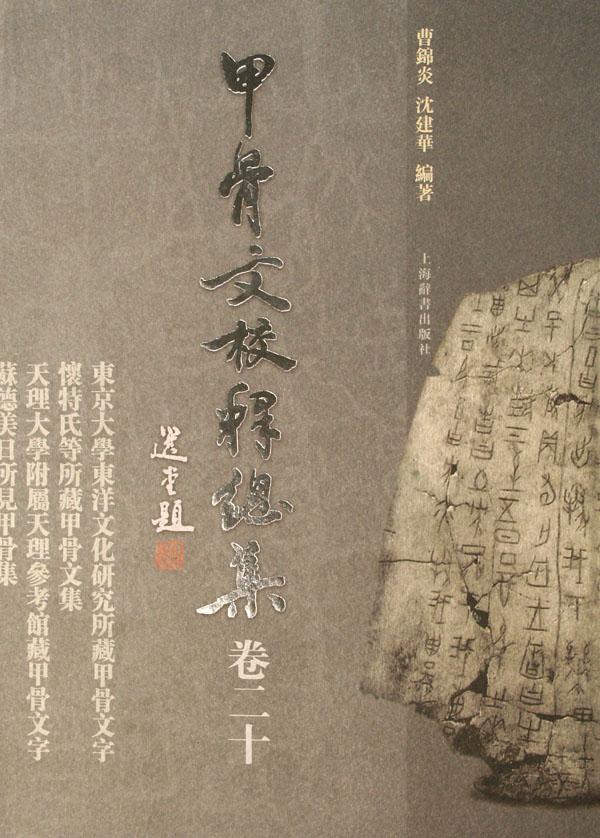 曹錦炎 沈建華 編著
上海辭書出版社
甲骨文校釋總集 卷二十
選堂題
東京大學東洋文化研究所藏甲骨文字
懷特氏等所藏甲骨文集
天理大學附屬天理參考館藏甲骨文字
蘇德美日所見甲骨集